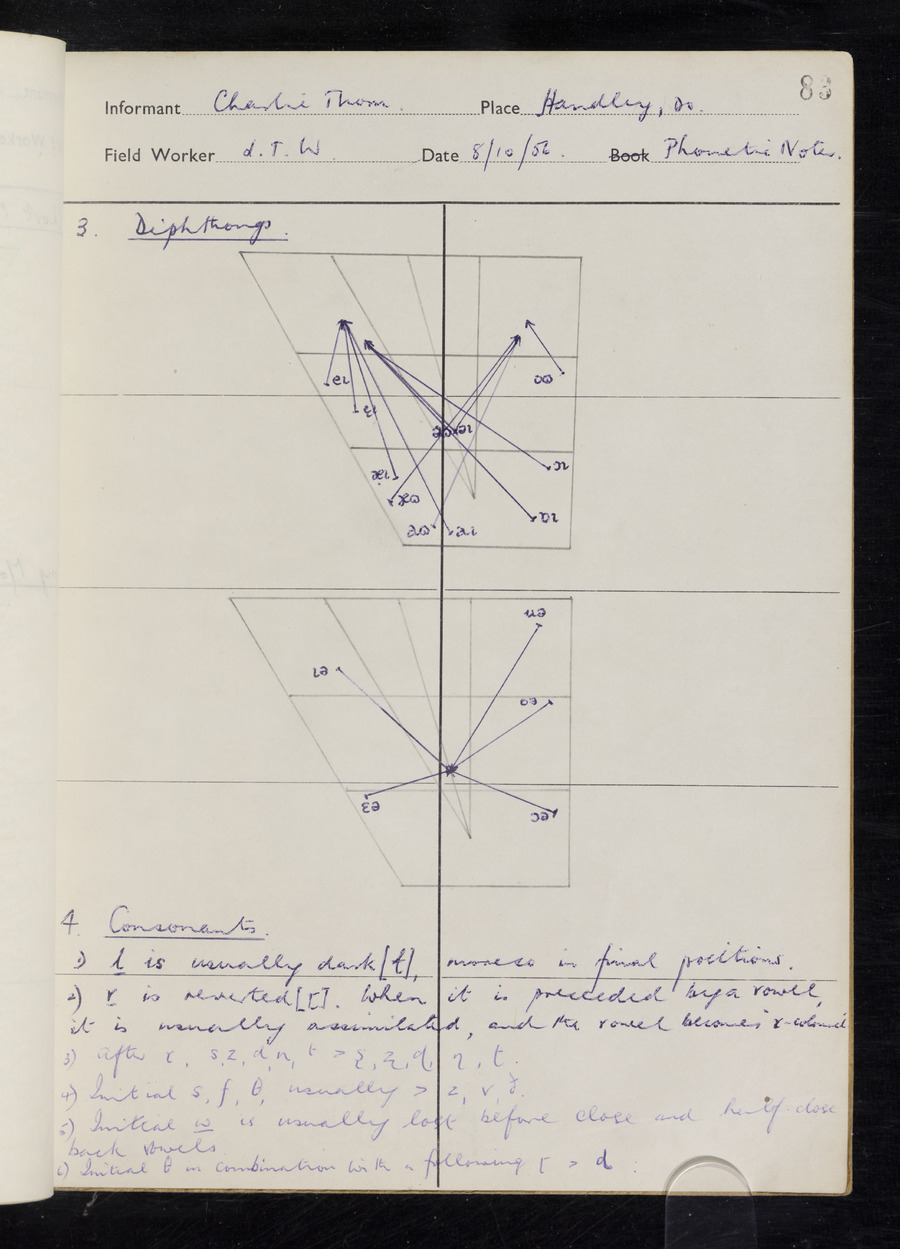 83
Informant Charlie Thorn. Place Handley, Do.
Field Worker J. T. W. Date 8/10/56. Book Phonetic Notes.
3. Diphthongs.
eɪ
ɛɪ
æɪ
æʊ
aʊ
aɪ
əʊ əɪ
oʊ
ɔɪ
ɒɪ
ɪə
uə
oə
ɛə
ɔə
4. Consonants.
1) l is usually dark [ɫ], moreso in final positions.
2) r is reverted [ɽ]. When it is preceded by a vowel,
it is usually assimilated, and the vowel becomes r-coloured
3) After r, s, z, d, n, t > ʂ, ʐ, ɖ, ɳ, ʈ.
4) Initial s, f, θ, usually > z, v, ð.
5) Initial w is usually lost before close and half-close
back vowels.
6) Initial θ in combination with a following ɽ > d.